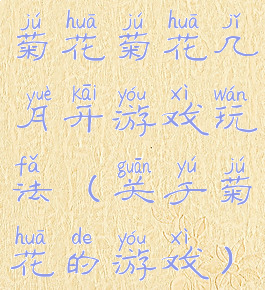 jú huā jú huā jǐ
菊花菊花几
yuè kāi yóu xì wán
月开游戏玩
fǎ guān yú jú
法(关于菊
huā de yóu xì
花的游戏)